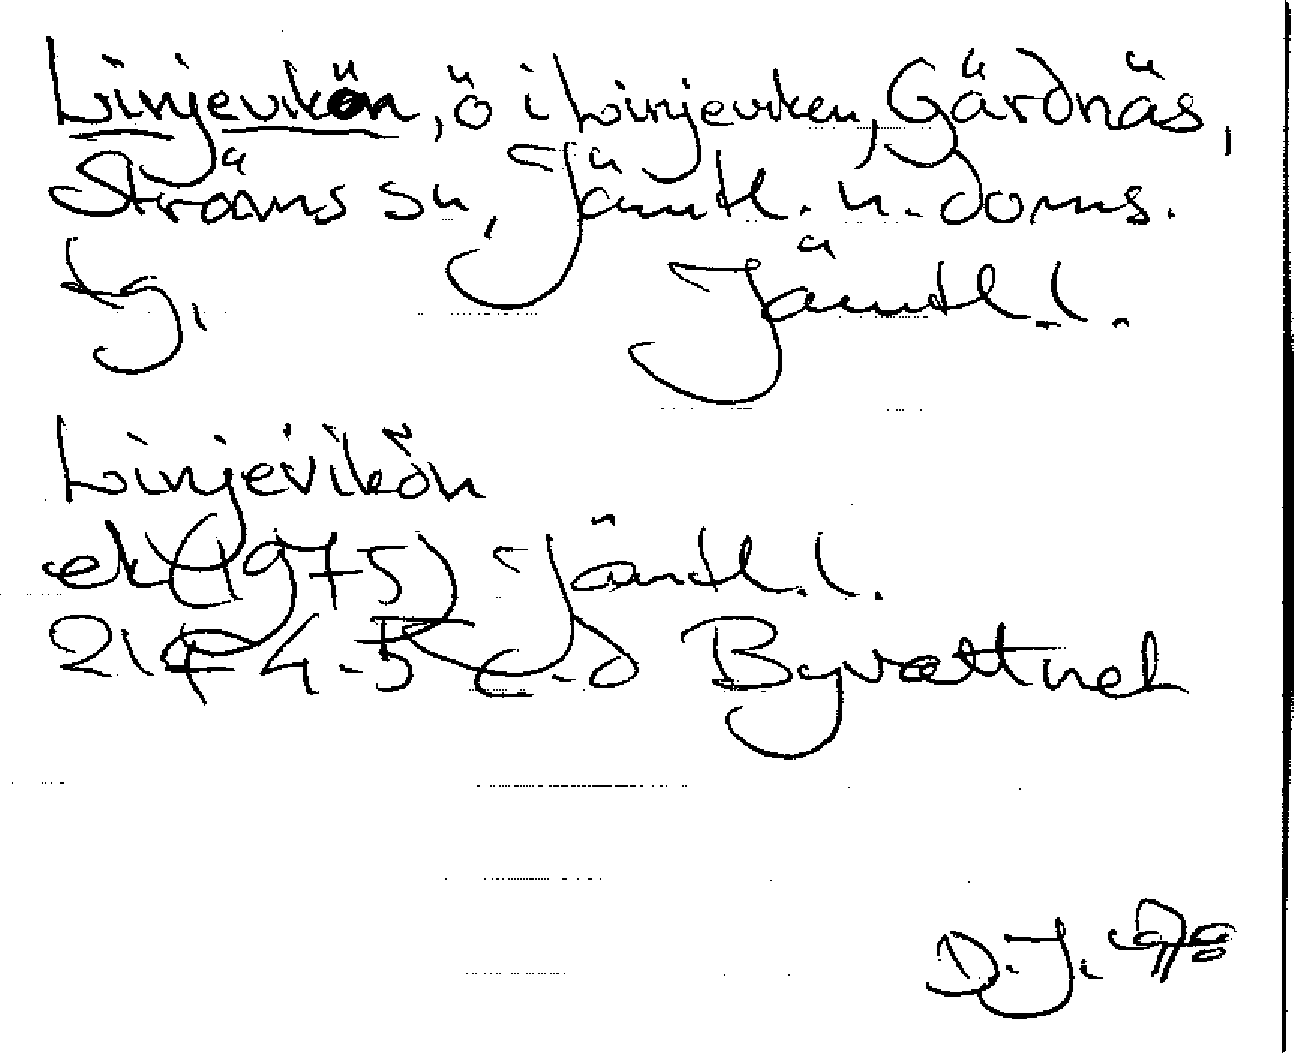 Linjevikön, ö i Linjeviken, Gärdnäs,
Ströms sn, Jämtl. n. doms.
Jämtl. l.
Linjevikön
ek (1975) Jämtl. l.
21F 4-5 c-d Byvattnet
D.J. 1978